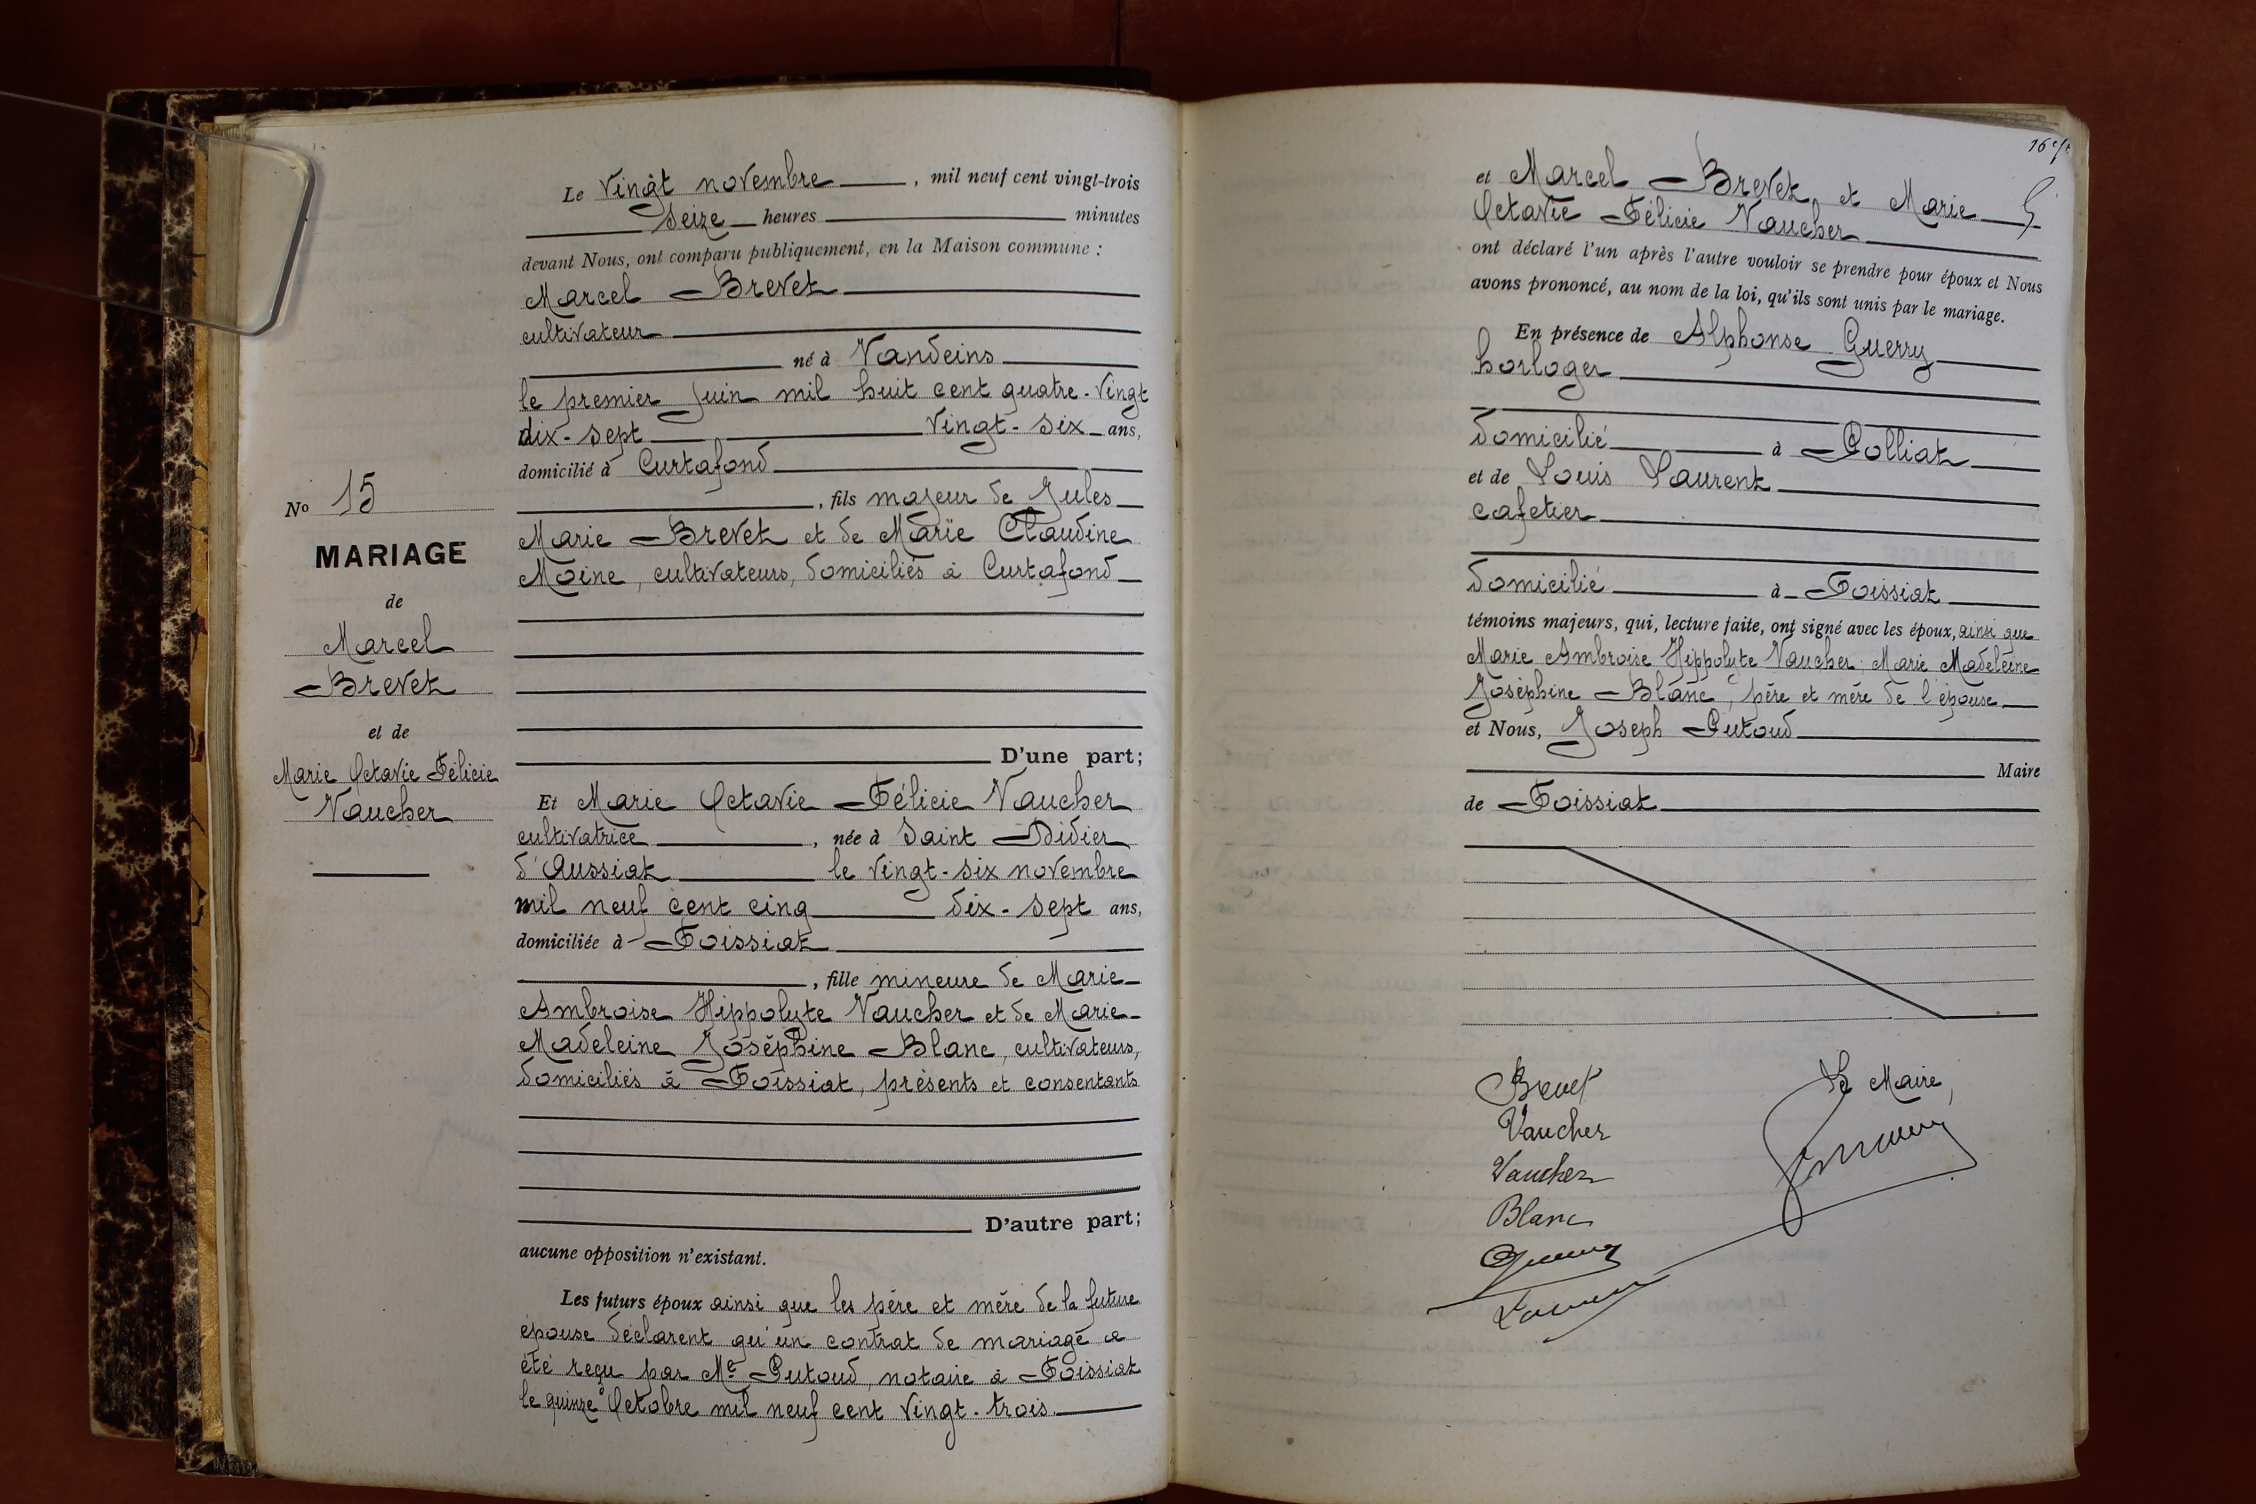 No 15
MARIAGE
de
Marcel
Brevet
et de
Marie Octavie Félicie
Vaucher
Le vingt novembre, mil neuf cent vingt-trois
seize heures minutes
devant Nous, ont comparu publiquement, en la Maison commune :
Marcel Brevet
cultivateur
né à Vandeins
le premier juin mil huit cent quatre-vingt
dix-sept vingt-six ans,
domicilié à Curtafond
, fils majeur de Jules
Marie Brevet et de Marie Claudine
Moine, cultivateurs, domiciliés à Curtafond
D'une part;
Et Marie Octavie Félicie Vaucher
cultivatrice, née à Saint Didier
d'Aussiat le vingt-six novembre
mil neuf cent cinq dix-sept ans,
domiciliée à Foissiat
, fille mineure de Marie
Ambroise Hippolyte Vaucher et de Marie
Madeleine Joséphine Blanc, cultivateurs,
domiciliés à Foissiat, présents et consentants
D'autre part;
aucune opposition n'existant.
Les futurs époux ainsi que les père et mère de la future
épouse déclarent qu'un contrat de mariage a
été reçu par Me Putoud, notaire à Foissiat
le quinze Octobre mil neuf cent vingt-trois.
et Marcel Brevet et Marie
Octavie Félicie Vaucher
ont déclaré l'un après l'autre vouloir se prendre pour époux et Nous
avons prononcé, au nom de la loi, qu'ils sont unis par le mariage.
En présence de Alphonse Guerry
horloger
domicilié à Polliat
et de Louis Laurent
cafetier
domicilié à Foissiat
témoins majeurs, qui, lecture faite, ont signé avec les époux, ainsi que
Marie Ambroise Hippolyte Vaucher, Marie Madeleine
Joséphine Blanc, père et mère de l'épouse
et Nous, Joseph Putoud
Maire
de Foissiat
Brevet
Vaucher
Vaucher
Blanc
Guerry
Laurent
Le Maire,